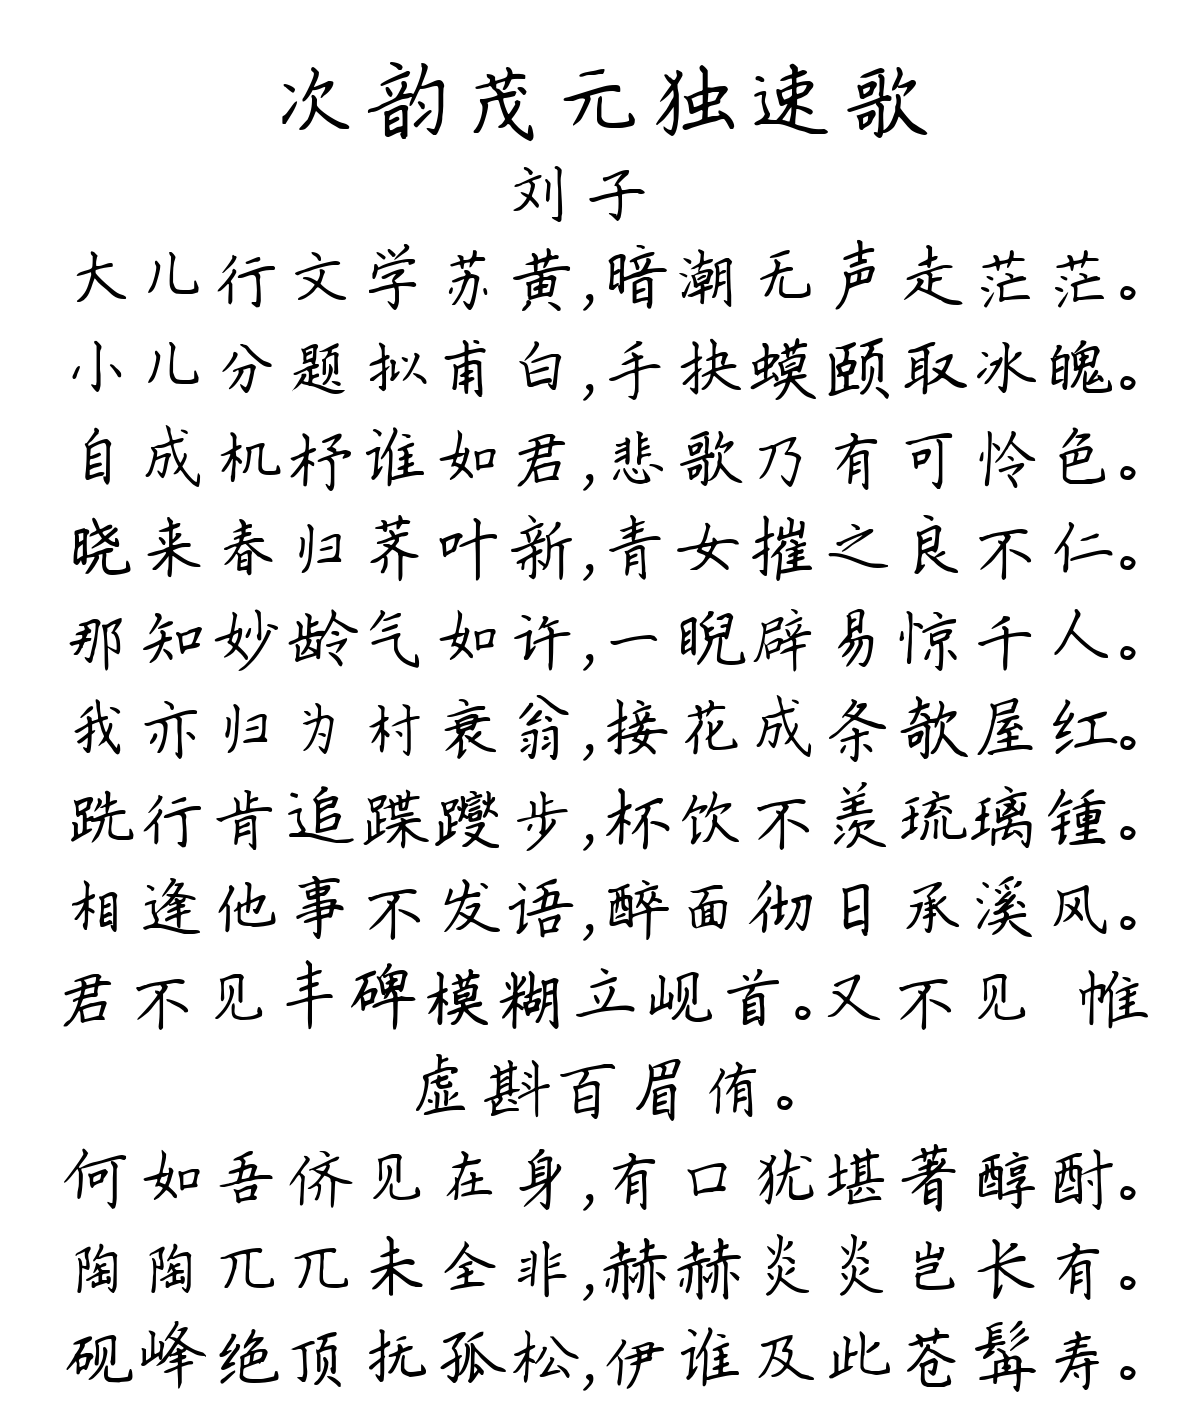 次韵茂元独速歌
刘子
大儿行文学苏黄,暗潮无声走茫茫。
小儿分题拟甫白,手抉蟆颐取冰魄。
自成机杼谁如君,悲歌乃有可怜色。
晓来春归荠叶新,青女摧之良不仁。
那知妙龄气如许,一睨辟易惊千人。
我亦归为村衰翁,接花成条欹屋红。
跣行肯追蹀躞步,杯饮不羡琉璃锺。
相逢他事不发语,醉面彻日承溪风。
君不见丰碑模糊立岘首。又不见 帷
虚斟百眉侑。
何如吾侪见在身,有口犹堪著醇酎。
陶陶兀兀未全非,赫赫炎炎岂长有。
砚峰绝顶抚孤松,伊谁及此苍髯寿。